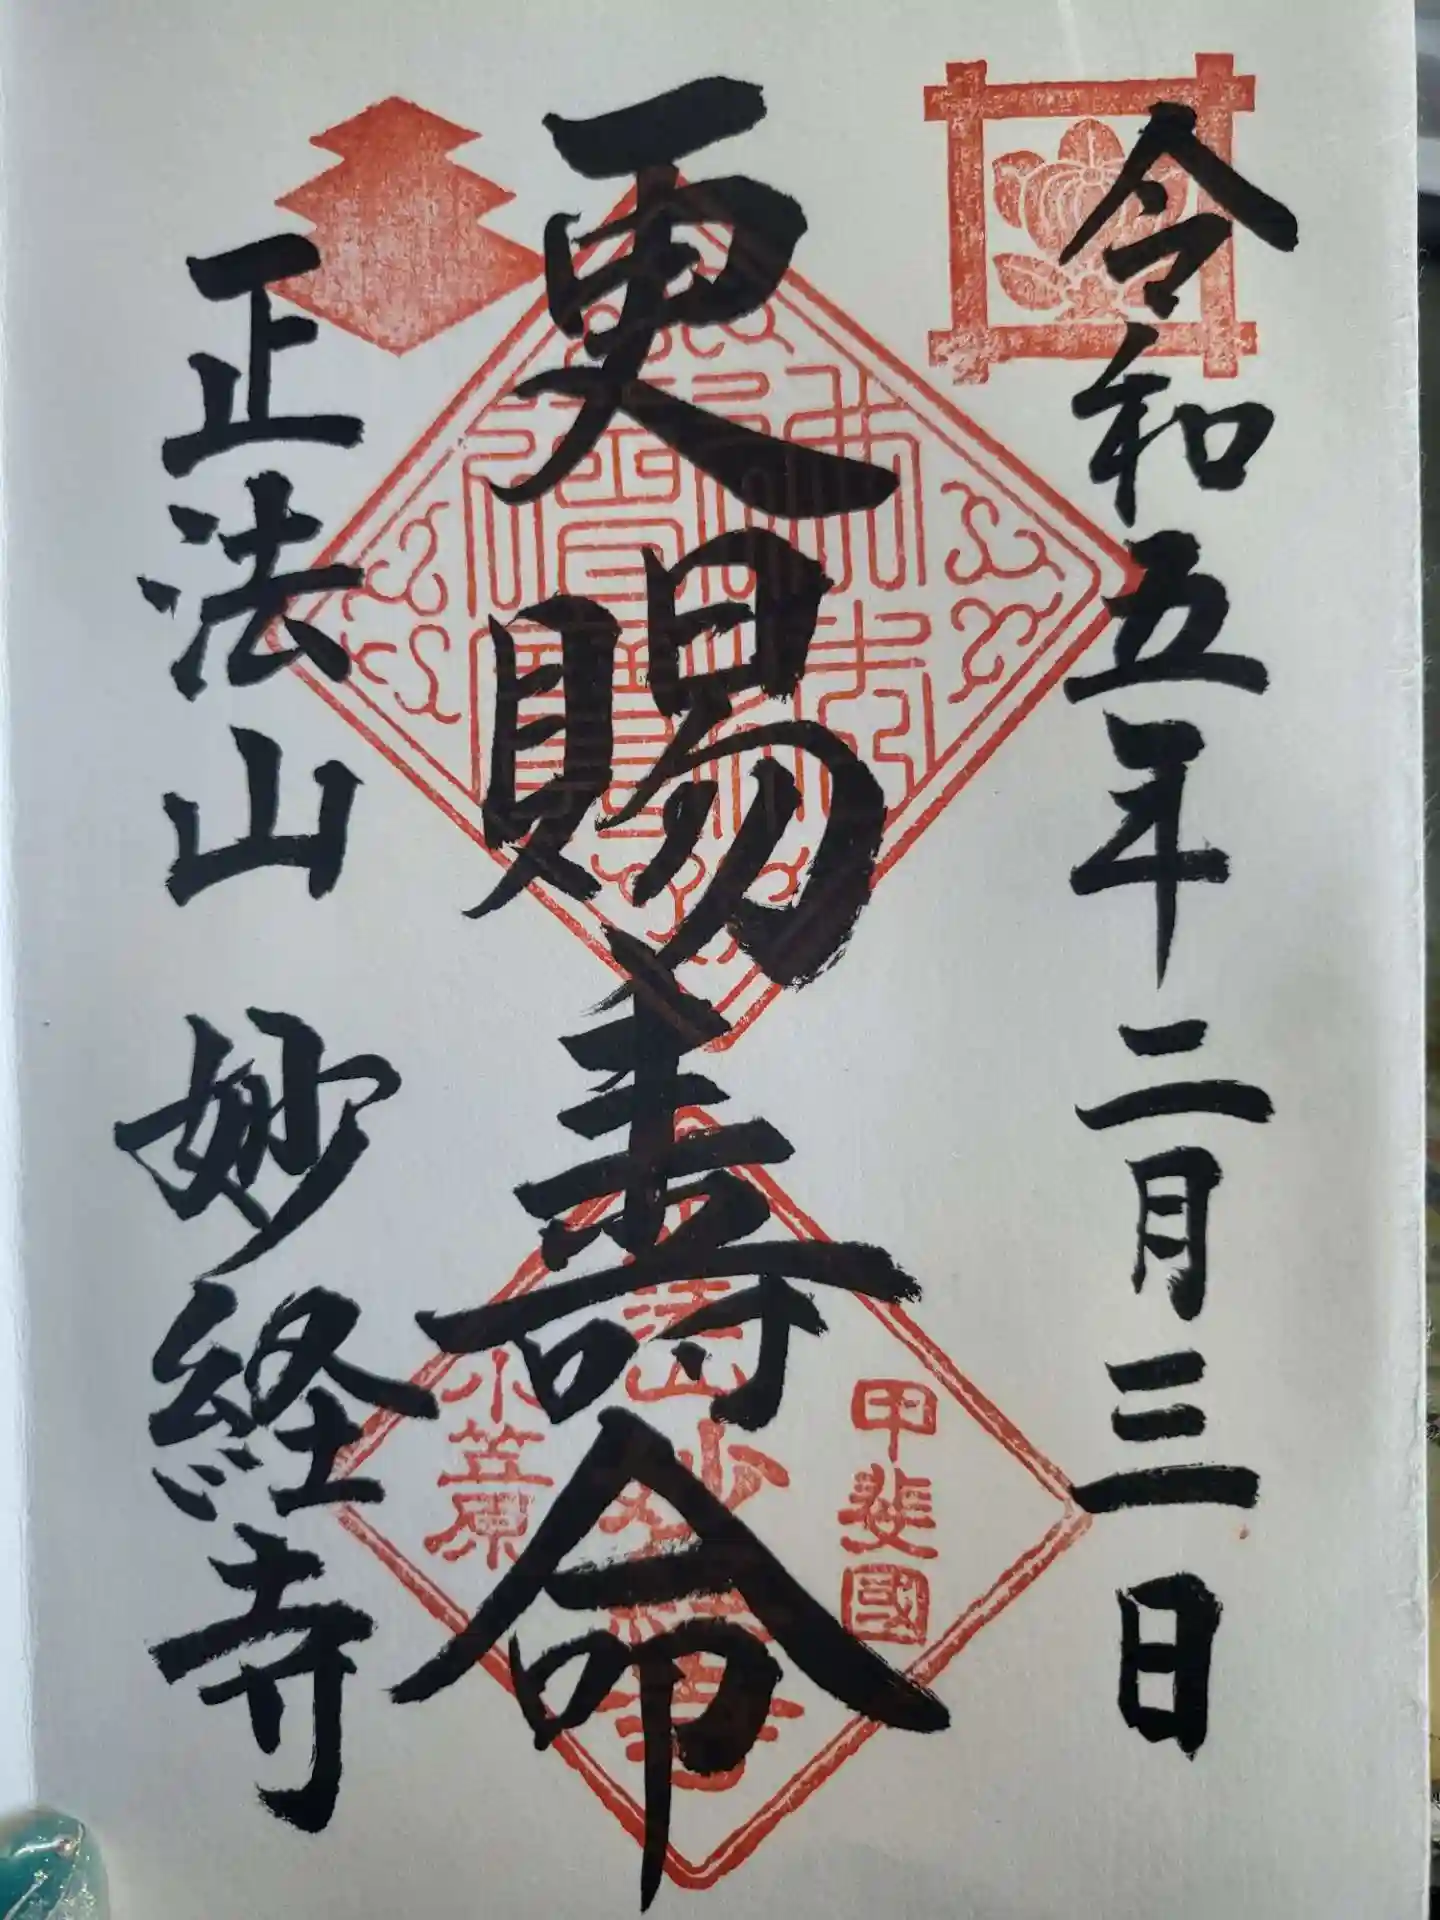 令和五年二月三日
更賜壽命
正法山 妙経寺
甲斐國
小笠原